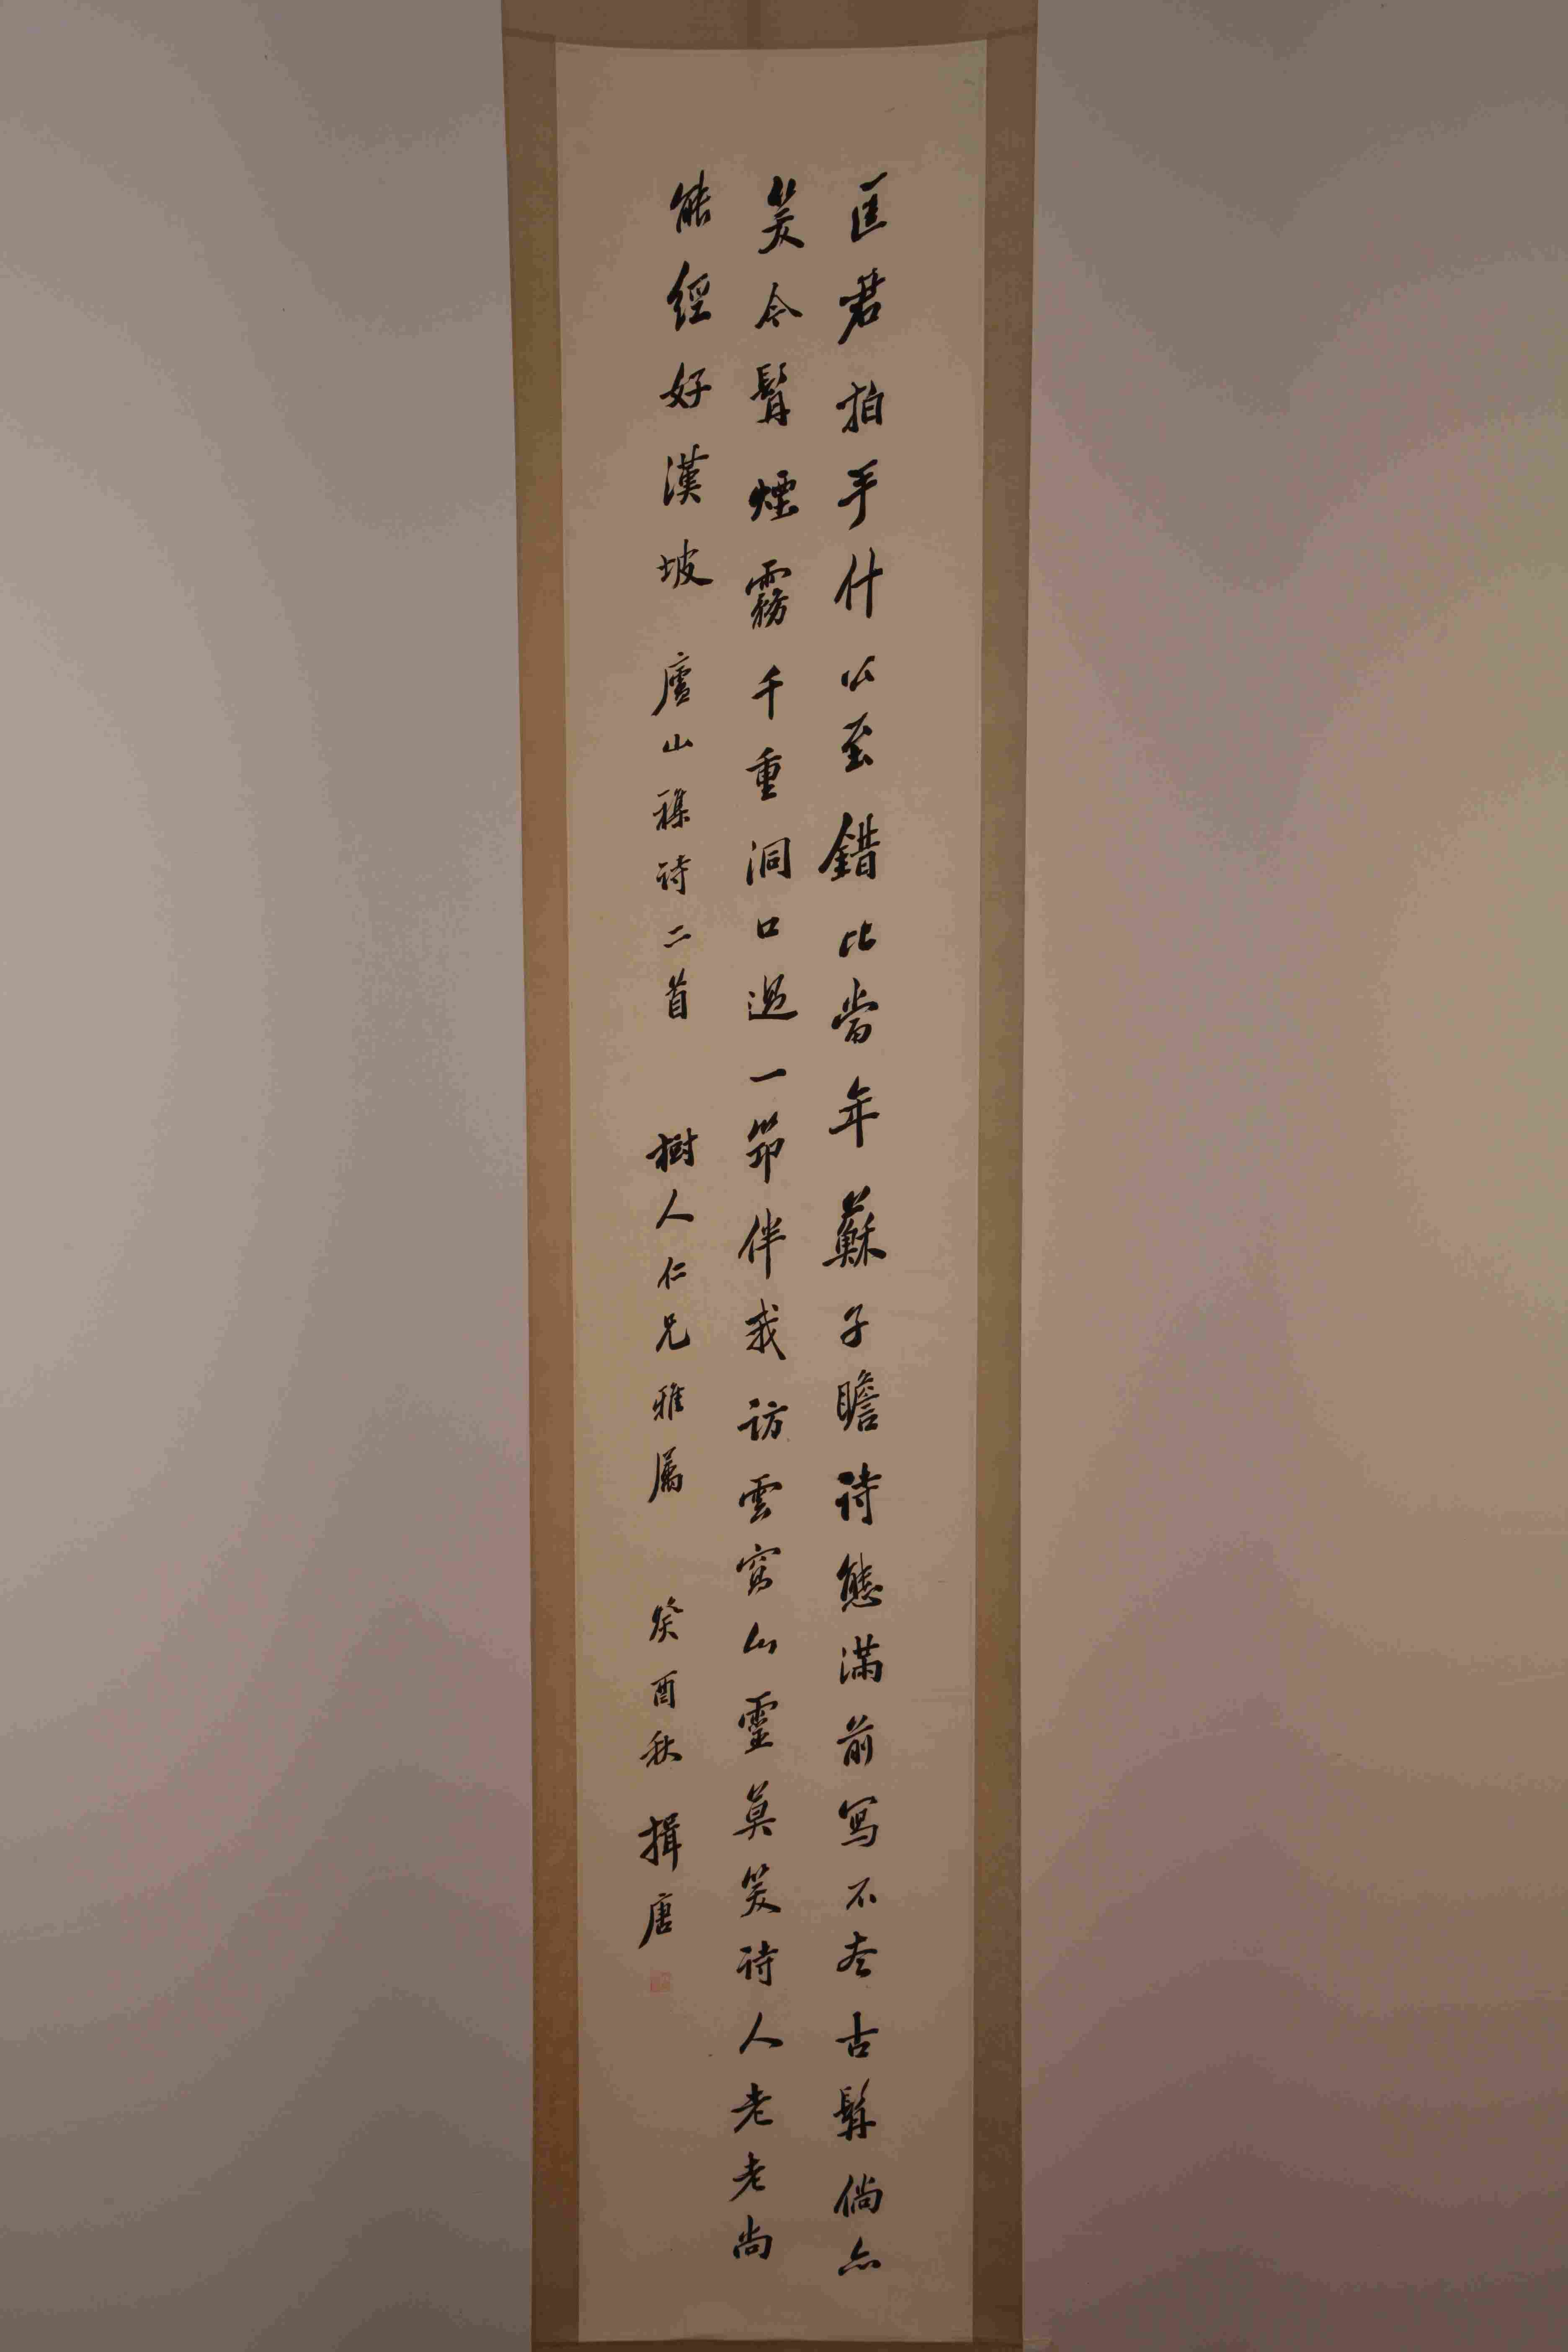 匡君拍手什公至錯比當年蘇子瞻詩態滿前寫不盡古髯倘亦
笑今髯煙霧千重洞口過一筇伴我訪雲窩山靈莫笑詩人老老尚
能經好漢坡 廬山襍詩二首 樹人仁兄雅屬 癸酉秋 揖唐